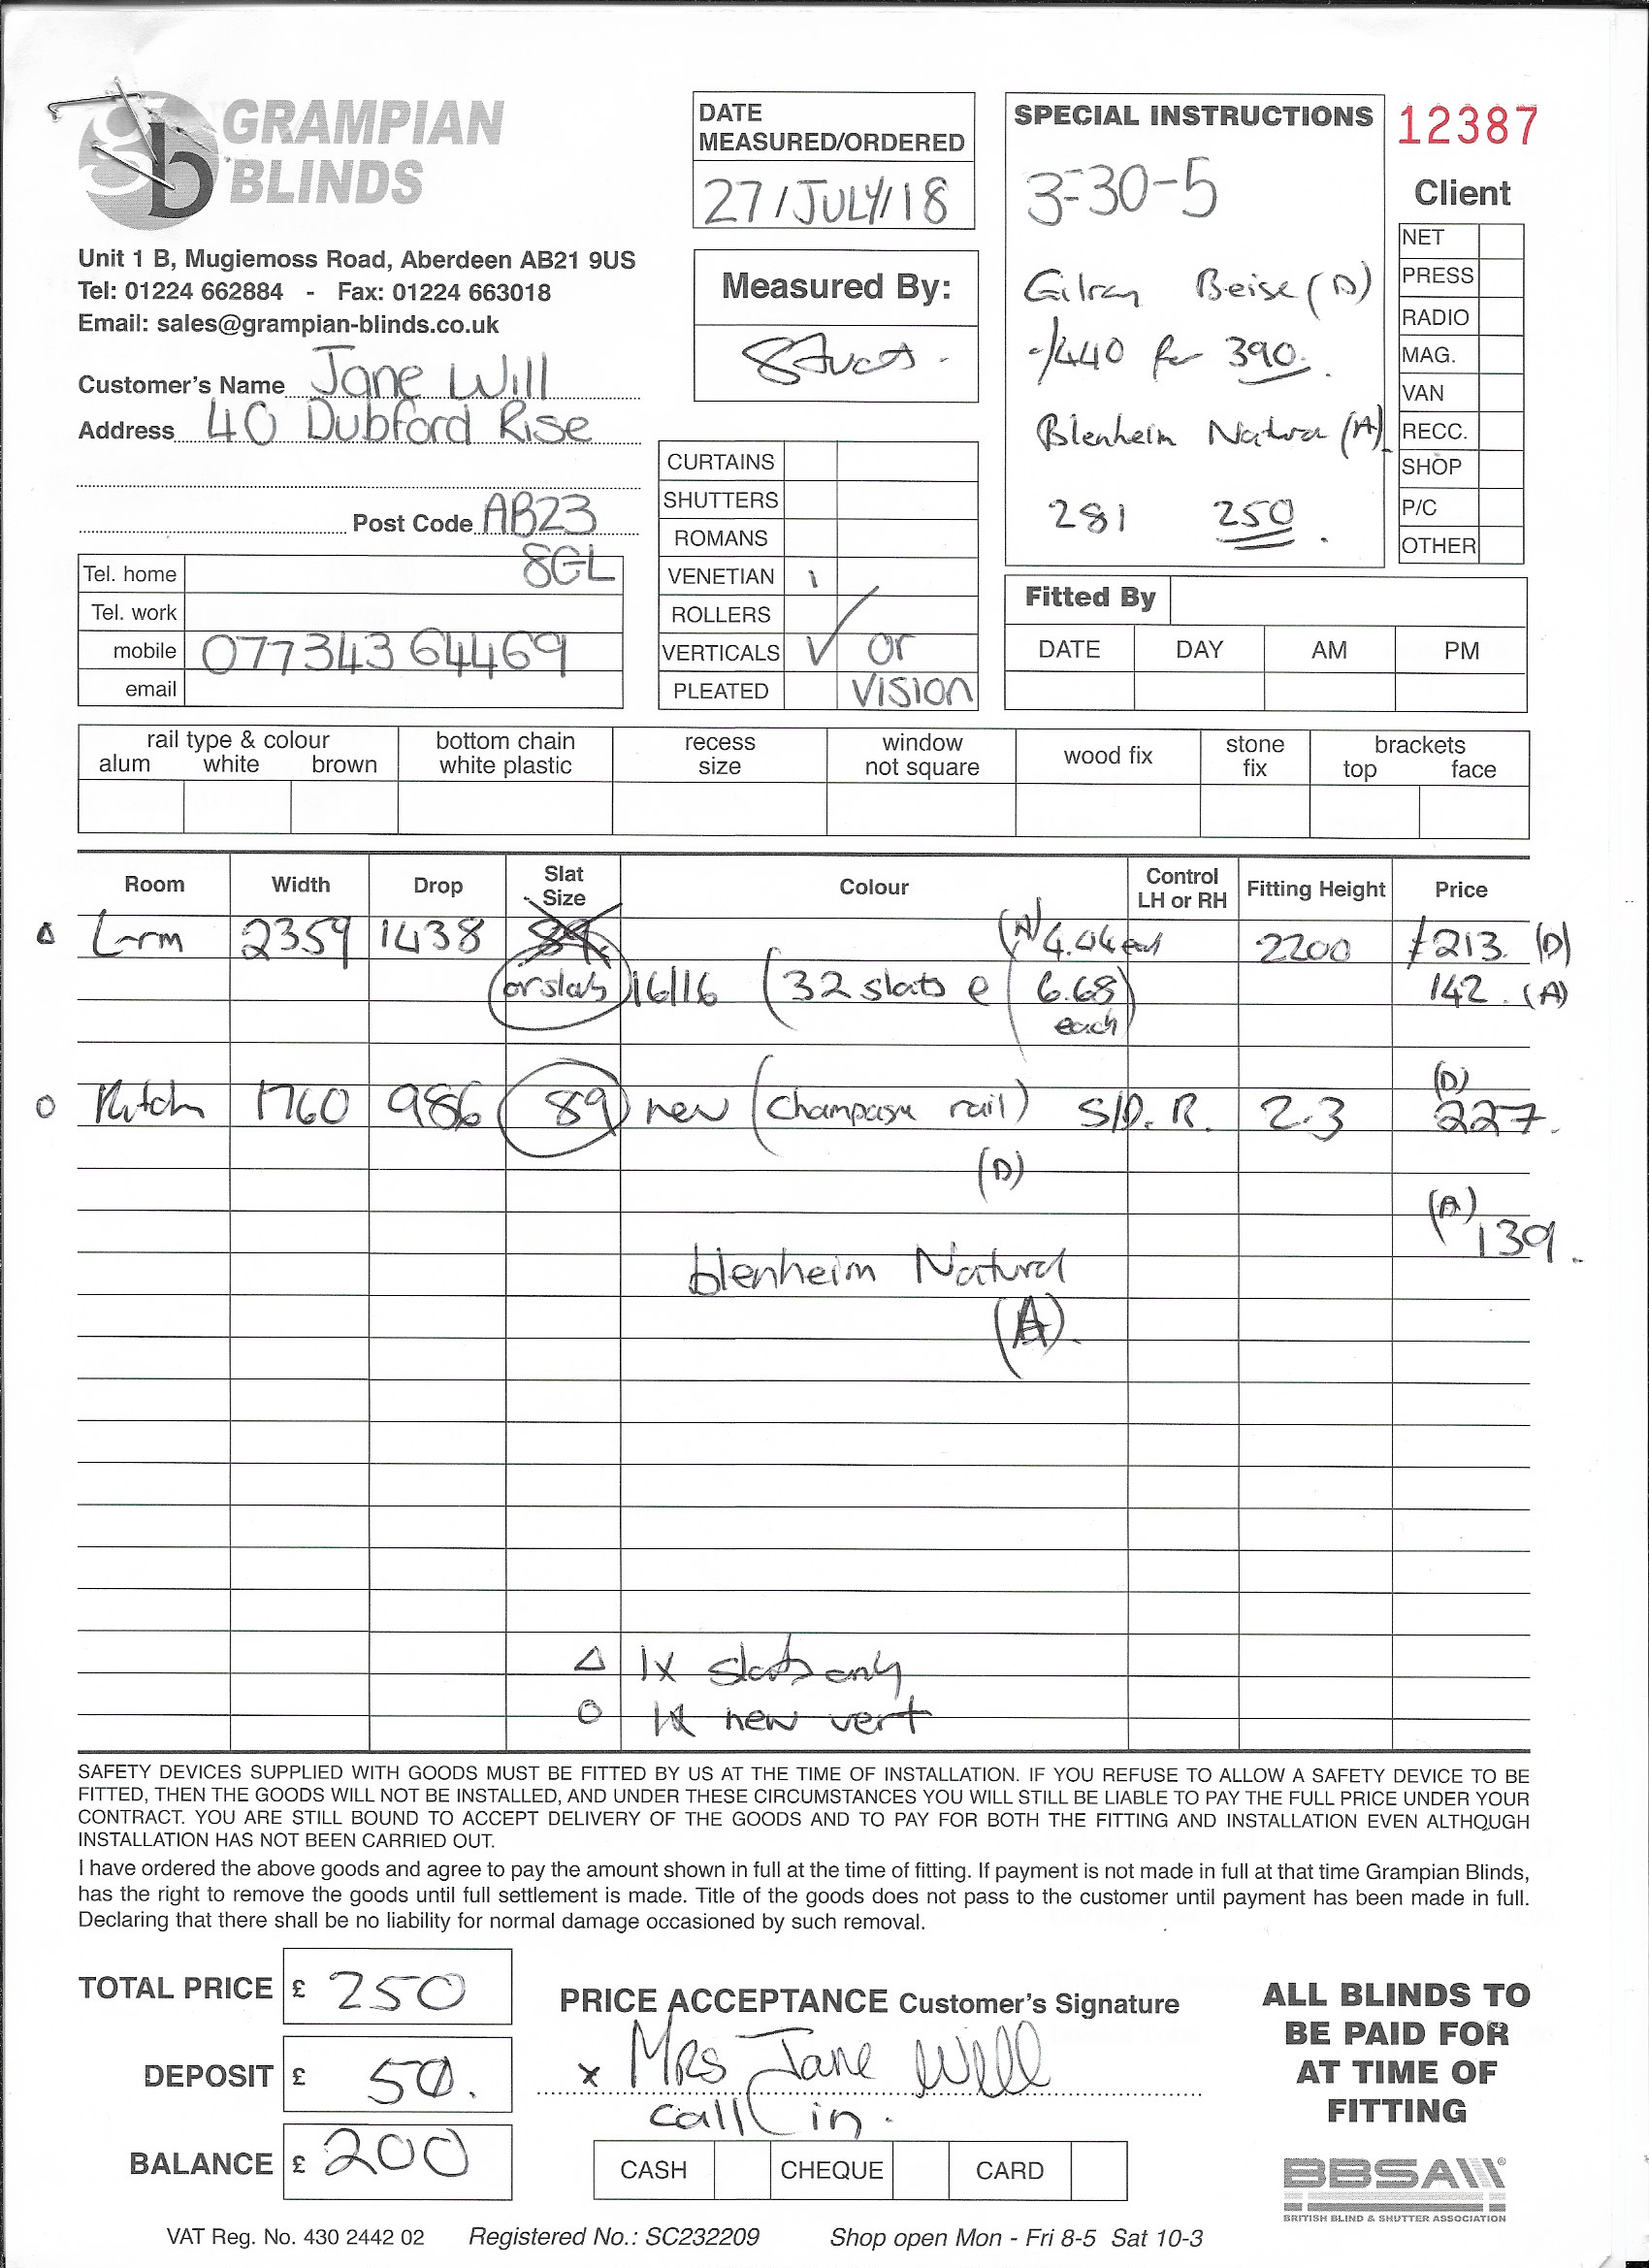 GRAMPIAN
BLINDS
Unit 1 B, Mugiemoss Road, Aberdeen AB21 9US
Tel: 01224 662884 - Fax: 01224 663018
Email: sales@grampian-blinds.co.uk
Customer's Name Jane Will
Address 40 Dubford Rise
Post Code AB23
8GL
Tel. home
Tel. work
mobile 07734364469
email
DATE
MEASURED/ORDERED
27/JULY/18
Measured By:
CURTAINS
SHUTTERS
ROMANS
VENETIAN
ROLLERS
VERTICALS ✓ or
PLEATED VISION
SPECIAL INSTRUCTIONS
3-30-5
Gilray Beise (D)
440 for 390.
Blenheim Natural (A)
281 250.
12387
Client
NET
PRESS
RADIO
MAG.
VAN
RECC.
SHOP
P/C
OTHER
Fitted By
DATE DAY AM PM
rail type & colour
alum white brown
bottom chain
white plastic
recess
size
window
not square
wood fix
stone
fix
brackets
top face
Room Width Drop Slat Size Colour Control LH or RH Fitting Height Price
Δ L-rm 2359 1438 89. (A) 4.44 each 2200 £213. (D)
or slats 16/16 (32 slats @ 6.68 each) 142. (A)
O Kitch 1760 986 89 new (champagne rail) S/D. R. 2.3 (D) 227.
(D)
(A) 139.
blenheim Natural
(A).
Δ 1x slats only
O 1x new vert
SAFETY DEVICES SUPPLIED WITH GOODS MUST BE FITTED BY US AT THE TIME OF INSTALLATION. IF YOU REFUSE TO ALLOW A SAFETY DEVICE TO BE
FITTED, THEN THE GOODS WILL NOT BE INSTALLED, AND UNDER THESE CIRCUMSTANCES YOU WILL STILL BE LIABLE TO PAY THE FULL PRICE UNDER YOUR
CONTRACT. YOU ARE STILL BOUND TO ACCEPT DELIVERY OF THE GOODS AND TO PAY FOR BOTH THE FITTING AND INSTALLATION EVEN ALTHOUGH
INSTALLATION HAS NOT BEEN CARRIED OUT.
I have ordered the above goods and agree to pay the amount shown in full at the time of fitting. If payment is not made in full at that time Grampian Blinds,
has the right to remove the goods until full settlement is made. Title of the goods does not pass to the customer until payment has been made in full.
Declaring that there shall be no liability for normal damage occasioned by such removal.
TOTAL PRICE £ 250
DEPOSIT £ 50.
BALANCE £ 200
PRICE ACCEPTANCE Customer's Signature
x Mrs Jane Will
call in.
CASH CHEQUE CARD
ALL BLINDS TO
BE PAID FOR
AT TIME OF
FITTING
BBSA
BRITISH BLIND & SHUTTER ASSOCIATION
VAT Reg. No. 430 2442 02 Registered No.: SC232209 Shop open Mon - Fri 8-5 Sat 10-3